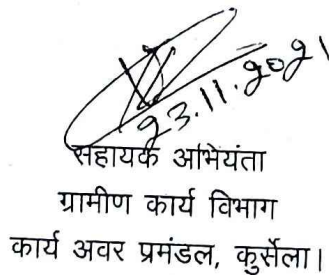 23.11.2021
सहायक अभियंता
ग्रामीण कार्य विभाग
कार्य अवर प्रमंडल, कुर्सेला।